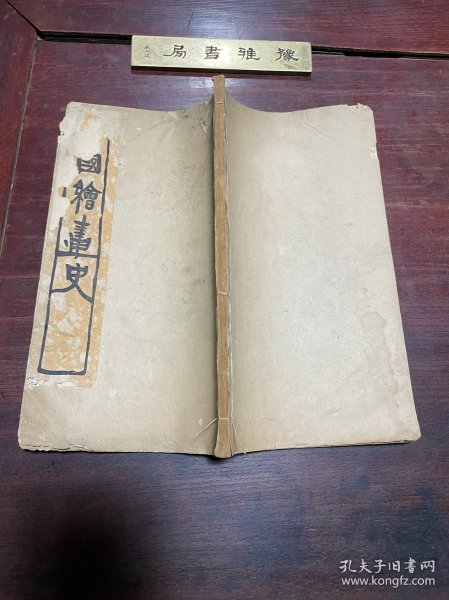 豫雅书局
國繪畫史
孔夫子旧书网
www.kongfz.com